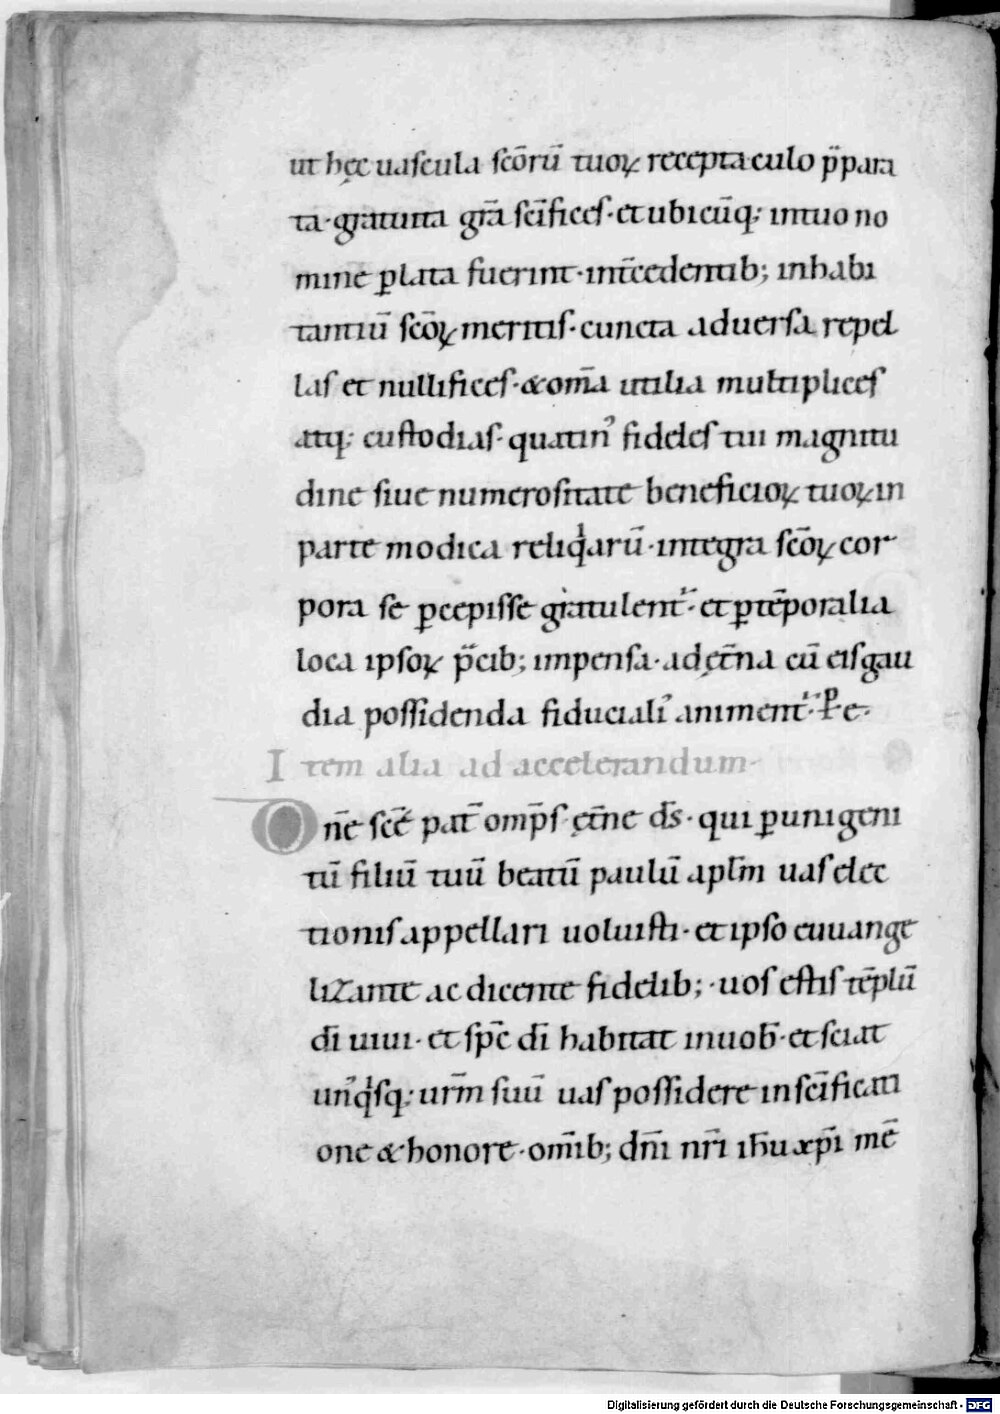 ut hęc uascula scōrū tuoꝝ receptaculo p̄para
ta· gratuita grā scīfices· et ubicūq; in tuo no
mine ꝑlata fuerint· int̄cedentib; inhabi
tantiū scōꝝ meritis· cuncta aduersa repel
las et nullifices· & om̄a utilia multiplices
atq; custodias· quatin᾽ fideles tui magnitu
dine siue numerositate beneficioꝝ tuoꝝ in
parte modica reliqͥarū· integra scōꝝ cor
pora se ꝑcepisse gratulent᷑· et ꝑ tēporalia
loca ipsoꝝ p̄cib; impensa· ad ęt̄na cū eis gau
dia possidenda fiduciali᾽ animent᷑· P e·
Item alia ad accelerandum·
Dn̄e scē pat̄ omp̄s ęt̄ne ds̄· qui ꝑ unigeni
tū filiū tuū beatū paulū apl̄m uas elec
tionis appellari uoluisti· et ipso euuange
lizante ac dicente fidelib;· uos estis tēplū
dī uiui· et sp̄c dī habitat in uob̄· et sciat
un᾽qͥsq; ur̄m suū uas possidere in scīficati
one & honore· om̄ib; dn̄i nr̄i ih̄u xp̄i mē
Digitalisierung gefördert durch die Deutsche Forschungsgemeinschaft - DFG